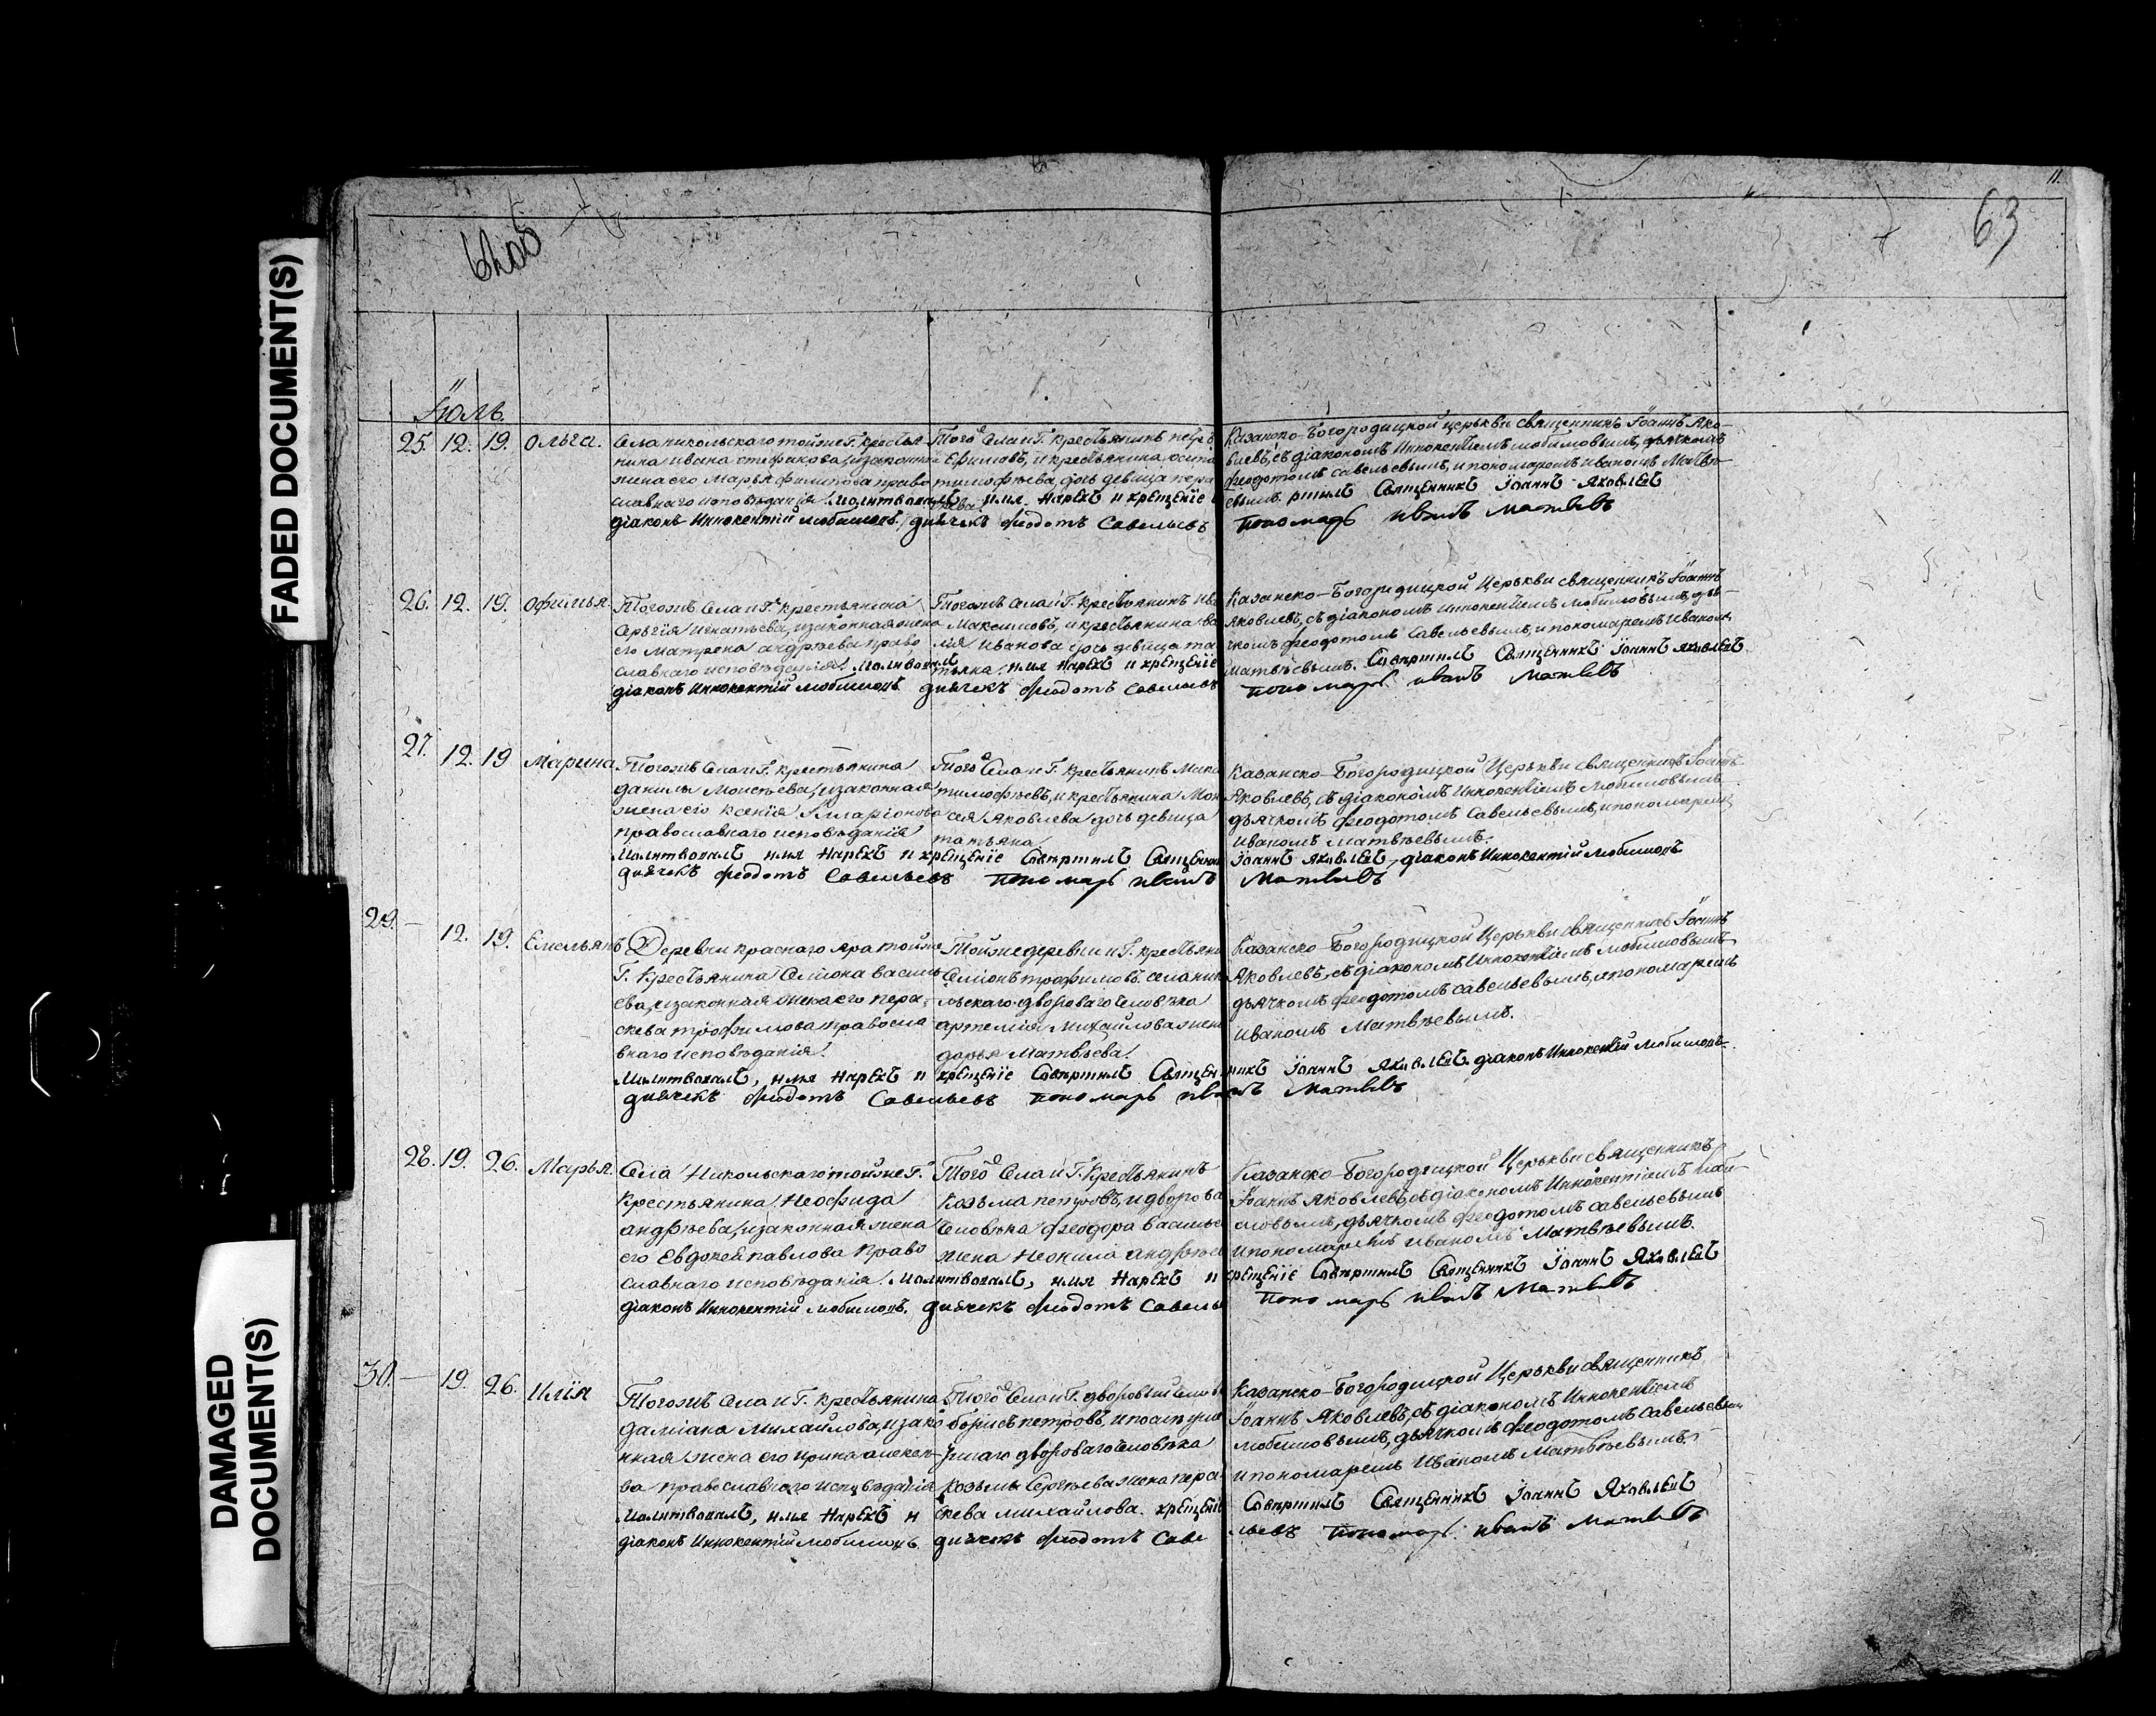 FADED DOCUMENT(S)
DAMAGED
DOCUMENT(S)
11.
63
Іюль.
25. 12. 19. Ольга.
Села никольскаго тойже Г. крестья-
нина ивана стефанова, изаконной
жена его Марья филипова право
славнаго исповѣданія. Молитвовалъ
Того Села и Г. крестьянинъ петръ
Ефимовъ, и крестьянина осипа
тимофѣева, дочь девица пара
имя Нарекъ и крещеніе
діаконъ Иннокентій любимовъ. дьячекъ Феодотъ Савельевъ
Казанско-Богородицкой церькви священникъ Іоаннъ Яко-
влевъ, съ діакономъ Иннокентіемъ любимовымъ, дьячкомъ
феодотомъ савельевымъ, и пономаремъ иваномъ Матвѣ-
евымъ. ршилъ Священникъ Іоаннъ Яковлевъ
пономарь иванъ Матвѣевъ
26. 12. 19. Офимья.
Тогожъ Села и Г. крестьянина
Сергѣя игнатьева, изаконная жена
его Матрена андрѣева право
славнаго исповѣданія. Молитвовалъ
Тогожъ села и Г. Крестьянинъ ив
Максимовъ, и крестьянина ва
лія иванова дочь девица та
тьяна. имя Нарекъ и крещеніе
діаконъ Иннокентій любимовъ. дьячекъ Феодотъ Савельевъ
Казанско-Богородицкой Церькви священникъ Іоаннъ
Яковлевъ, съ діакономъ иннокентіемъ любимовымъ, дья-
чкомъ феодотомъ Савельевымъ, и пономаремъ Иваномъ
Матвѣевымъ. Совершилъ Священникъ Іоаннъ Яковлевъ
пономарь иванъ Матвѣевъ
27. 12. 19 Марина
Тогожъ Села и Г. крестьянина
данилы Моисѣева, изаконная
жена его ксенія Илларіонова
православнаго исповѣданія
Того Села и Г. Крестьянинъ Мака
тимофѣевъ, и крестьянина Мои
сея Яковлева дочь девица
татьяна
Молитвовалъ имя Нарекъ и крещеніе Совершилъ Священни
дьячекъ Феодотъ Савельевъ пономарь иванъ
Казанско-Богородицкой Церькви священникъ Іоаннъ
Яковлевъ, съ діакономъ иннокентіемъ любимовымъ
дьячкомъ феодотомъ Савельевымъ, и пономаремъ
иваномъ Матвѣевымъ.
Іоаннъ Яковлевъ, діаконъ Иннокентій Любимовъ
Матвѣевъ
29. — 12. 19. Емельянъ
Деревни краснаго яра тойже
Г. Крестьянина Симіона василь
ева, изаконная жена его пара-
скева трофимова, правосла
внаго исповѣданія.
Тойже деревни и Г. крестьяни
Симіонъ трофимовъ. села ник
льскаго дворового человѣка
артемія Михайлова жена
дарья Матвѣева.
Молитвовалъ, имя Нарекъ и крещеніе Совершилъ Священ
дьячекъ Феодотъ Савельевъ пономарь ива
Казанско-Богородицкой Церькви священникъ Іоаннъ
Яковлевъ, съ діакономъ Иннокентіемъ любимовымъ
дьячкомъ феодотомъ савельевымъ, и пономаремъ
Иваномъ Матвѣевымъ.
никъ Іоаннъ Яковлевъ. діаконъ Иннокентій Любимовъ.
нъ Матвѣевъ
28. 19. 26. Марья.
Села Никольскаго тойже Г.
Крестьянина Неофида
андрѣева, изаконная жена
его Евдокея павлова право
славнаго исповѣданія. Молитвовалъ, имя Нарекъ и
Того Села и Г. Крестьянинъ
Козьма петровъ, и дворова
человѣка феодора Василье
жена Неонила андрѣев
діаконъ Иннокентій любимовъ. дьячекъ Феодотъ Савель
Казанско-Богородицкой Церькви священникъ
Іоаннъ Яковлевъ, съ діакономъ Иннокентіемъ люби-
мовымъ, дьячкомъ феодотомъ савельевымъ
ипономаремъ иваномъ Матвѣевымъ.
крещеніе Совершилъ Священникъ Іоаннъ Яковлевъ
пономарь иванъ Матвѣевъ
30. — 19. 26. Илія
Тогожъ Села и Г. крестьянина
даміана Михайлова, изако
нная жена его ирина алексѣе
ва православнаго исповѣданія
Молитвовалъ, имя Нарекъ и
діаконъ Иннокентій любимовъ.
Того Села и Г. дворовый челов
борисъ петровъ,
дворового человѣка
козьмы Сергѣева жена пара
скева михайлова. крещеніе
дьячекъ Феодотъ Саве
Казанско-Богородицкой Церькви священникъ
Іоаннъ Яковлевъ, съ діакономъ Иннокентіемъ
любимовымъ, дьячкомъ феодотомъ савельевым
ипономаремъ иваномъ Матвѣевымъ.
Совершилъ Священникъ Іоаннъ Яковлевъ
льевъ пономарь иванъ Матвѣевъ